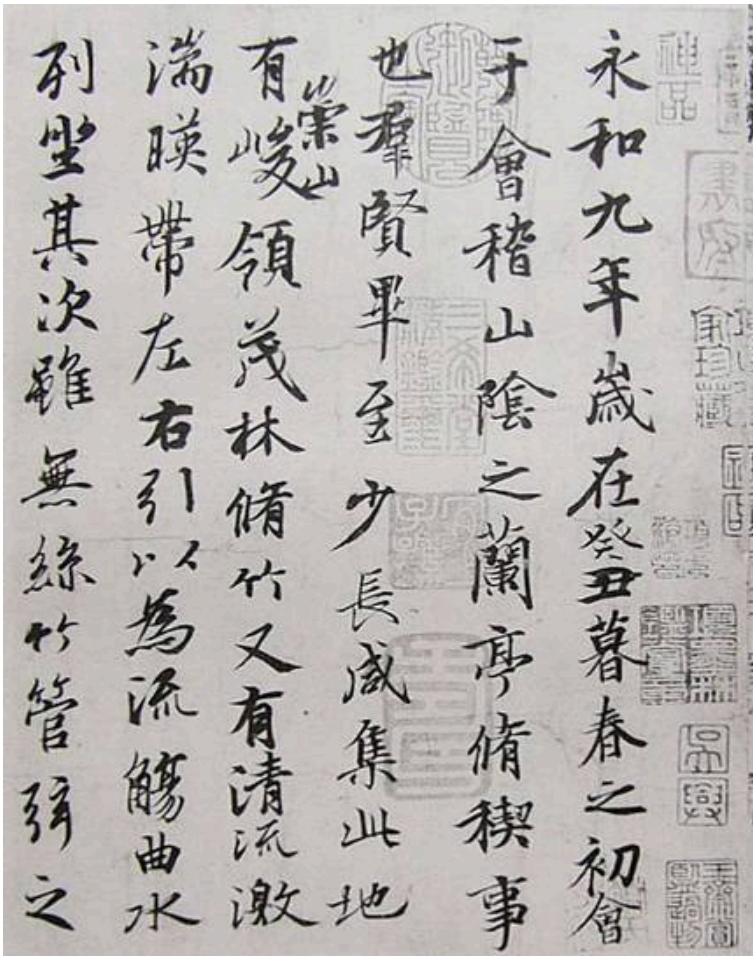 永和九年歲在癸丑暮春之初會
于會稽山陰之蘭亭脩稧事
也羣賢畢至少長咸集此地
有崇山峻領茂林脩竹又有清流激
湍暎帶左右引以為流觴曲水
列坐其次雖無絲竹管弦之
神品